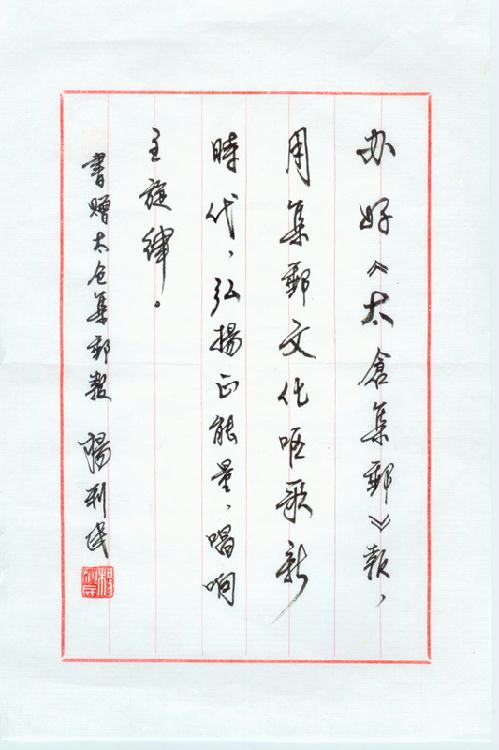 办好《太倉集郵》報，
用集郵文化呕歌新
時代，弘揚正能量，唱响
主旋律。
書赠太仓集邮報 楊利民